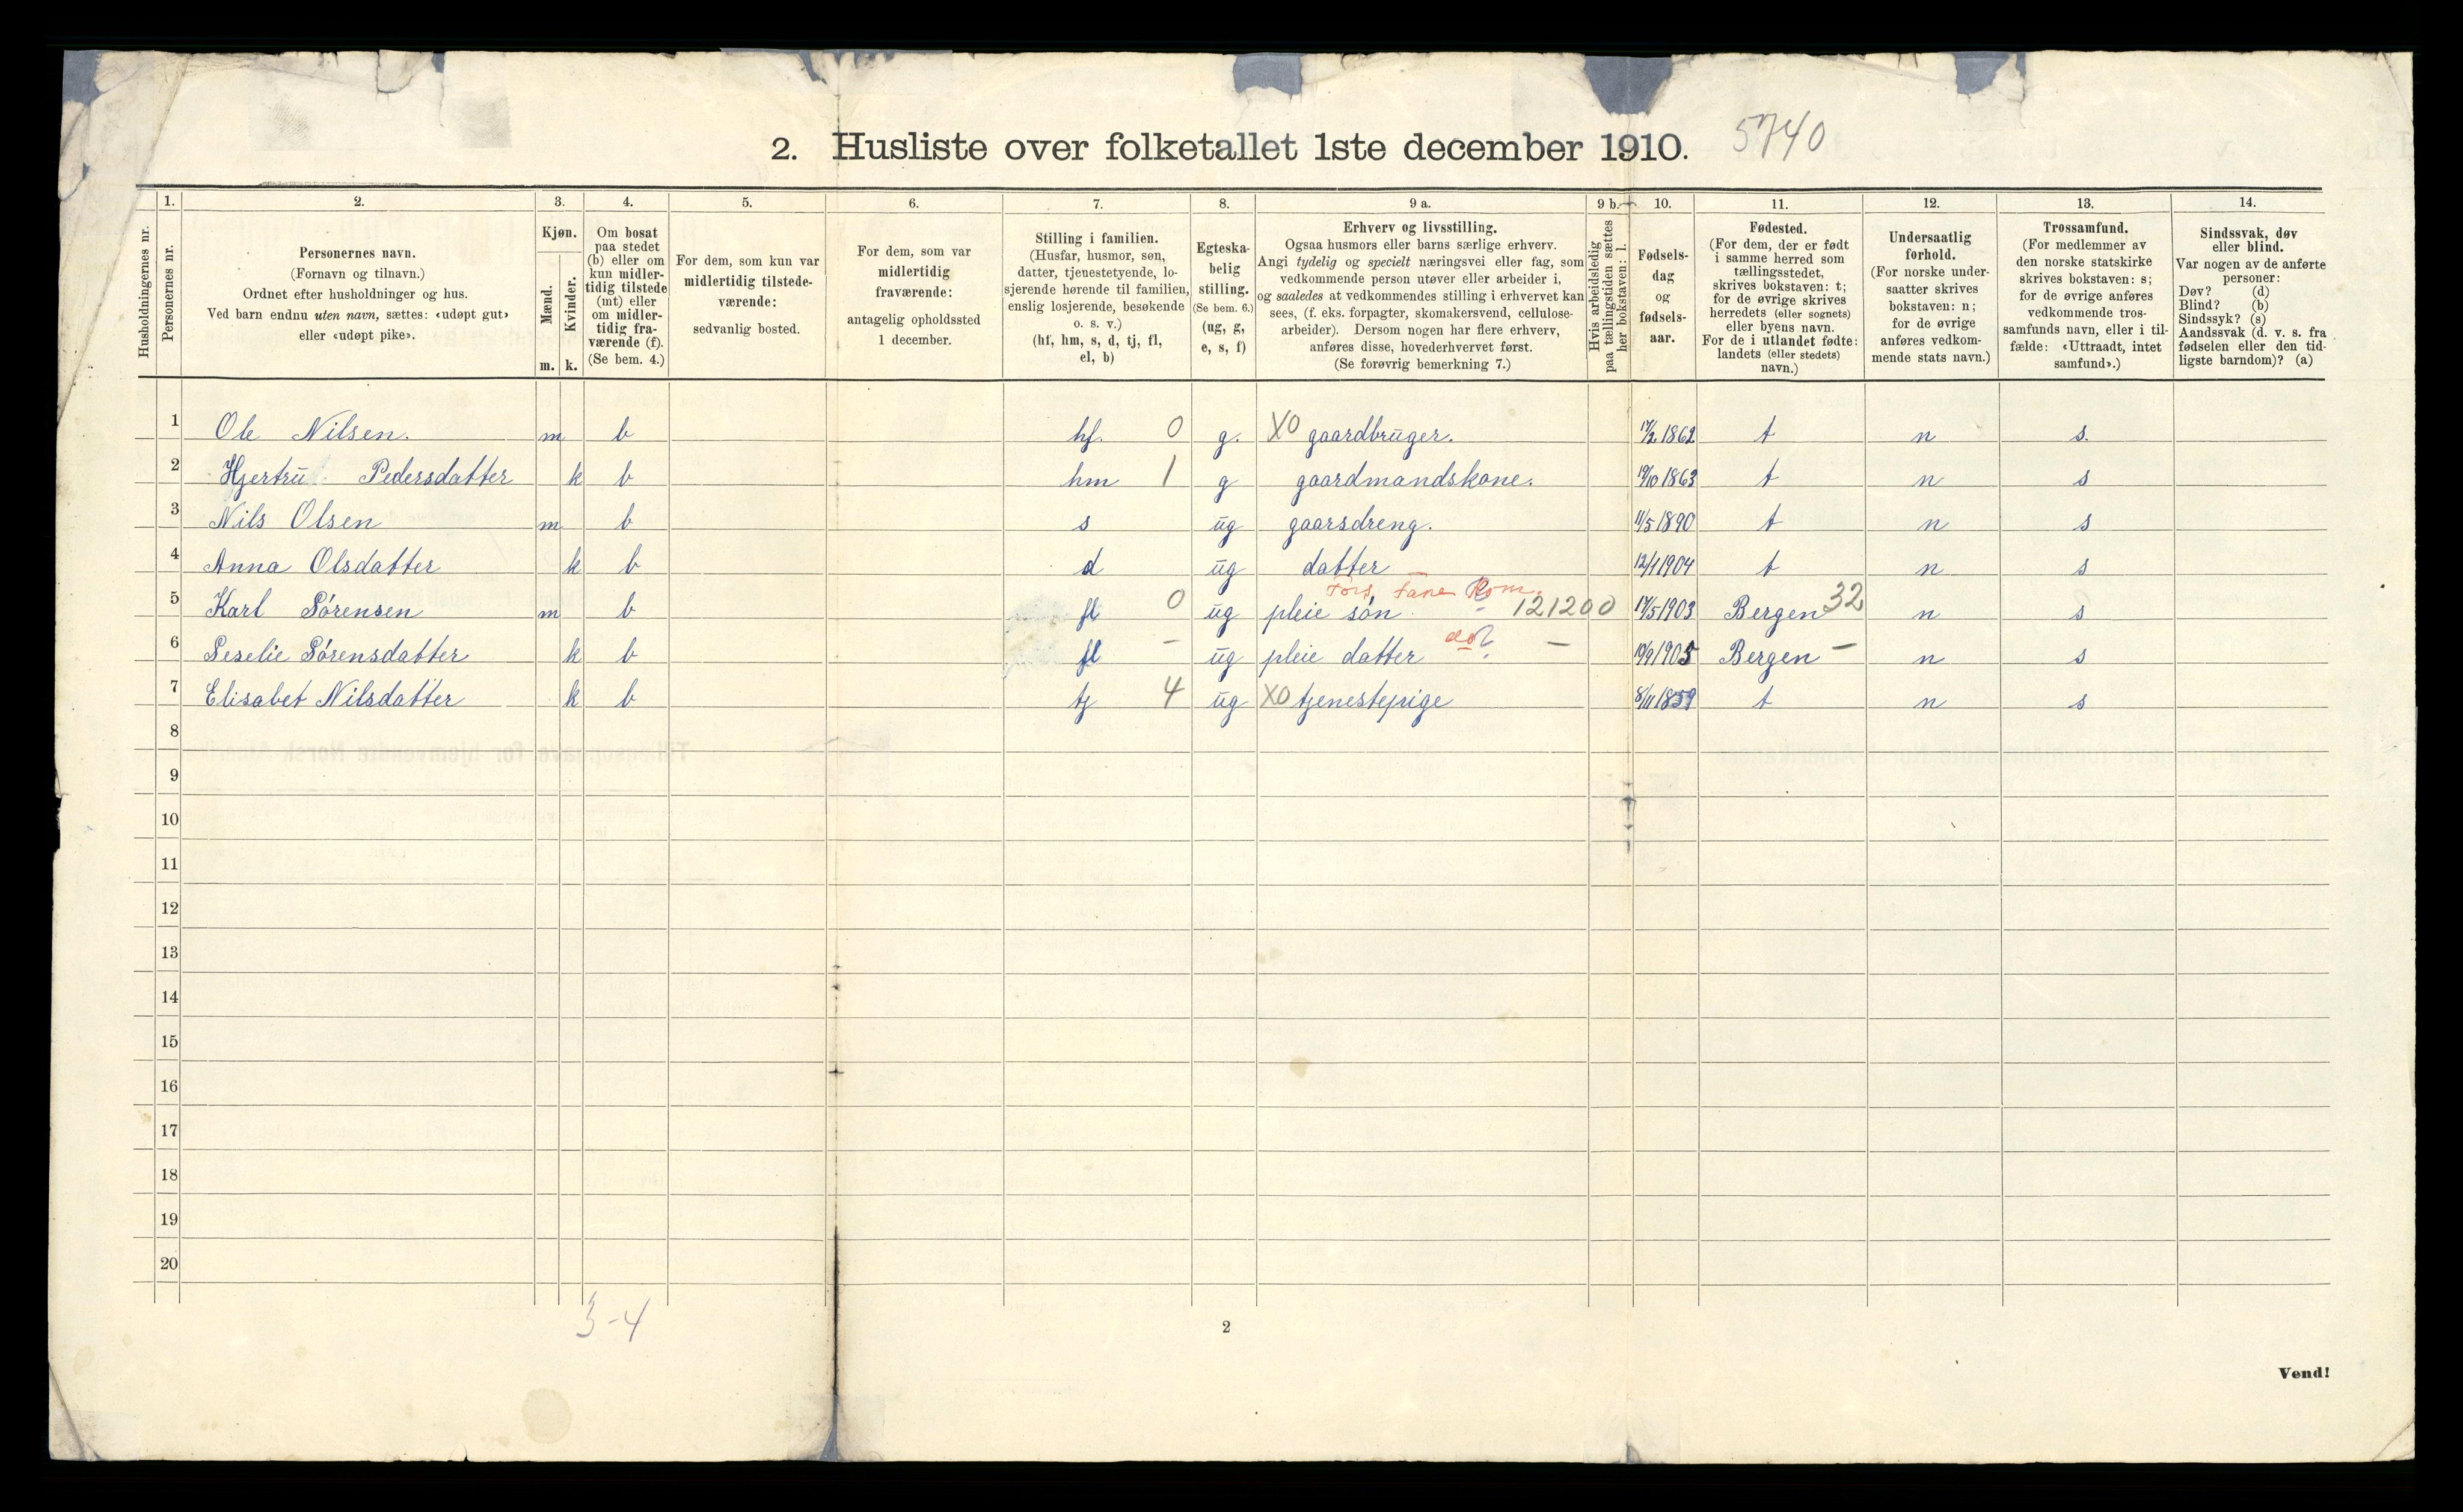 2. Husliste over folketallet 1ste december 1910. 5740
Husholdningernes nr.
1.
Personernes nr.
2.
Personernes navn.
(Fornavn og tilnavn.)
Ordnet efter husholdninger og hus.
Ved barn endnu uten navn, sættes: «udøpt gut»
eller «udøpt pike».
3.
Kjøn.
Mænd.
m.
Kvinder.
k.
4.
Om bosat
paa stedet
(b) eller om
kun midler-
tidig tilstede
(mt) eller
om midler-
tidig fra-
værende (f).
(Se bem. 4.)
5.
For dem, som kun var
midlertidig tilstede-
værende:
sedvanlig bosted.
6.
For dem, som var
midlertidig
fraværende:
antagelig opholdssted
1 december.
7.
Stilling i familien.
(Husfar, husmor, søn,
datter, tjenestetyende, lo-
sjerende hørende til familien,
enslig losjerende, besøkende
o. s. v.)
(hf, hm, s, d, tj, fl,
el, b)
8.
Egteska-
belig
stilling.
(Se bem. 6.)
(ug, g,
e, s, f)
9 a.
Erhverv og livsstilling.
Ogsaa husmors eller barns særlige erhverv.
Angi tydelig og specielt næringsvei eller fag, som
vedkommende person utøver eller arbeider i,
og saaledes at vedkommendes stilling i erhvervet kan
sees, (f. eks. forpagter, skomakersvend, cellulose-
arbeider). Dersom nogen har flere erhverv,
anføres disse, hovederhvervet først.
(Se forøvrig bemerkning 7.)
9 b.
Hvis arbeidsledig
paa tællingstiden sættes
her bokstaven: l.
10.
Fødsels-
dag
og
fødsels-
aar.
11.
Fødested.
(For dem, der er født
i samme herred som
tællingsstedet,
skrives bokstaven: t;
for de øvrige skrives
herredets (eller sognets)
eller byens navn.
For de i utlandet fødte:
landets (eller stedets)
navn.)
12.
Undersaatlig
forhold.
(For norske under-
saatter skrives
bokstaven: n;
for de øvrige
anføres vedkom-
mende stats navn.)
13.
Trossamfund.
(For medlemmer av
den norske statskirke
skrives bokstaven: s;
for de øvrige anføres
vedkommende tros-
samfunds navn, eller i til-
fælde: «Uttraadt, intet
samfund».)
14.
Sindssvak, døv
eller blind.
Var nogen av de anførte
personer:
Døv? (d)
Blind? (b)
Sindssyk? (s)
Aandssvak (d. v. s. fra
fødselen eller den tid-
ligste barndom)? (a)
1 Ole Nilsen. m b hf. 0 g. X0 gaardbruger. 17/2 1862 t n s.
2 Hjertru Pedersdatter k b hm 1 g gaardmandskone. 19/10 1863 t n s
3 Nils Olsen m b s ug gaarsdreng. 11/5 1890 t n s
4 Anna Olsdatter k b d ug datter 12/1 1904 t n s
5 Karl Sørensen m b fl 0 ug pleie søn 121200 17/5 1903 Bergen 32 n s
6 Seselie Sørensdatter k b fl - ug pleie datter do? - 19/9 1905 Bergen - n s
7 Elisabet Nilsdatter k b tj 4 ug X0 tjenestepige 8/11 1859 t n s
8
9
10
11
12
13
14
15
16
17
18
19
20
3-4
2
Vend!